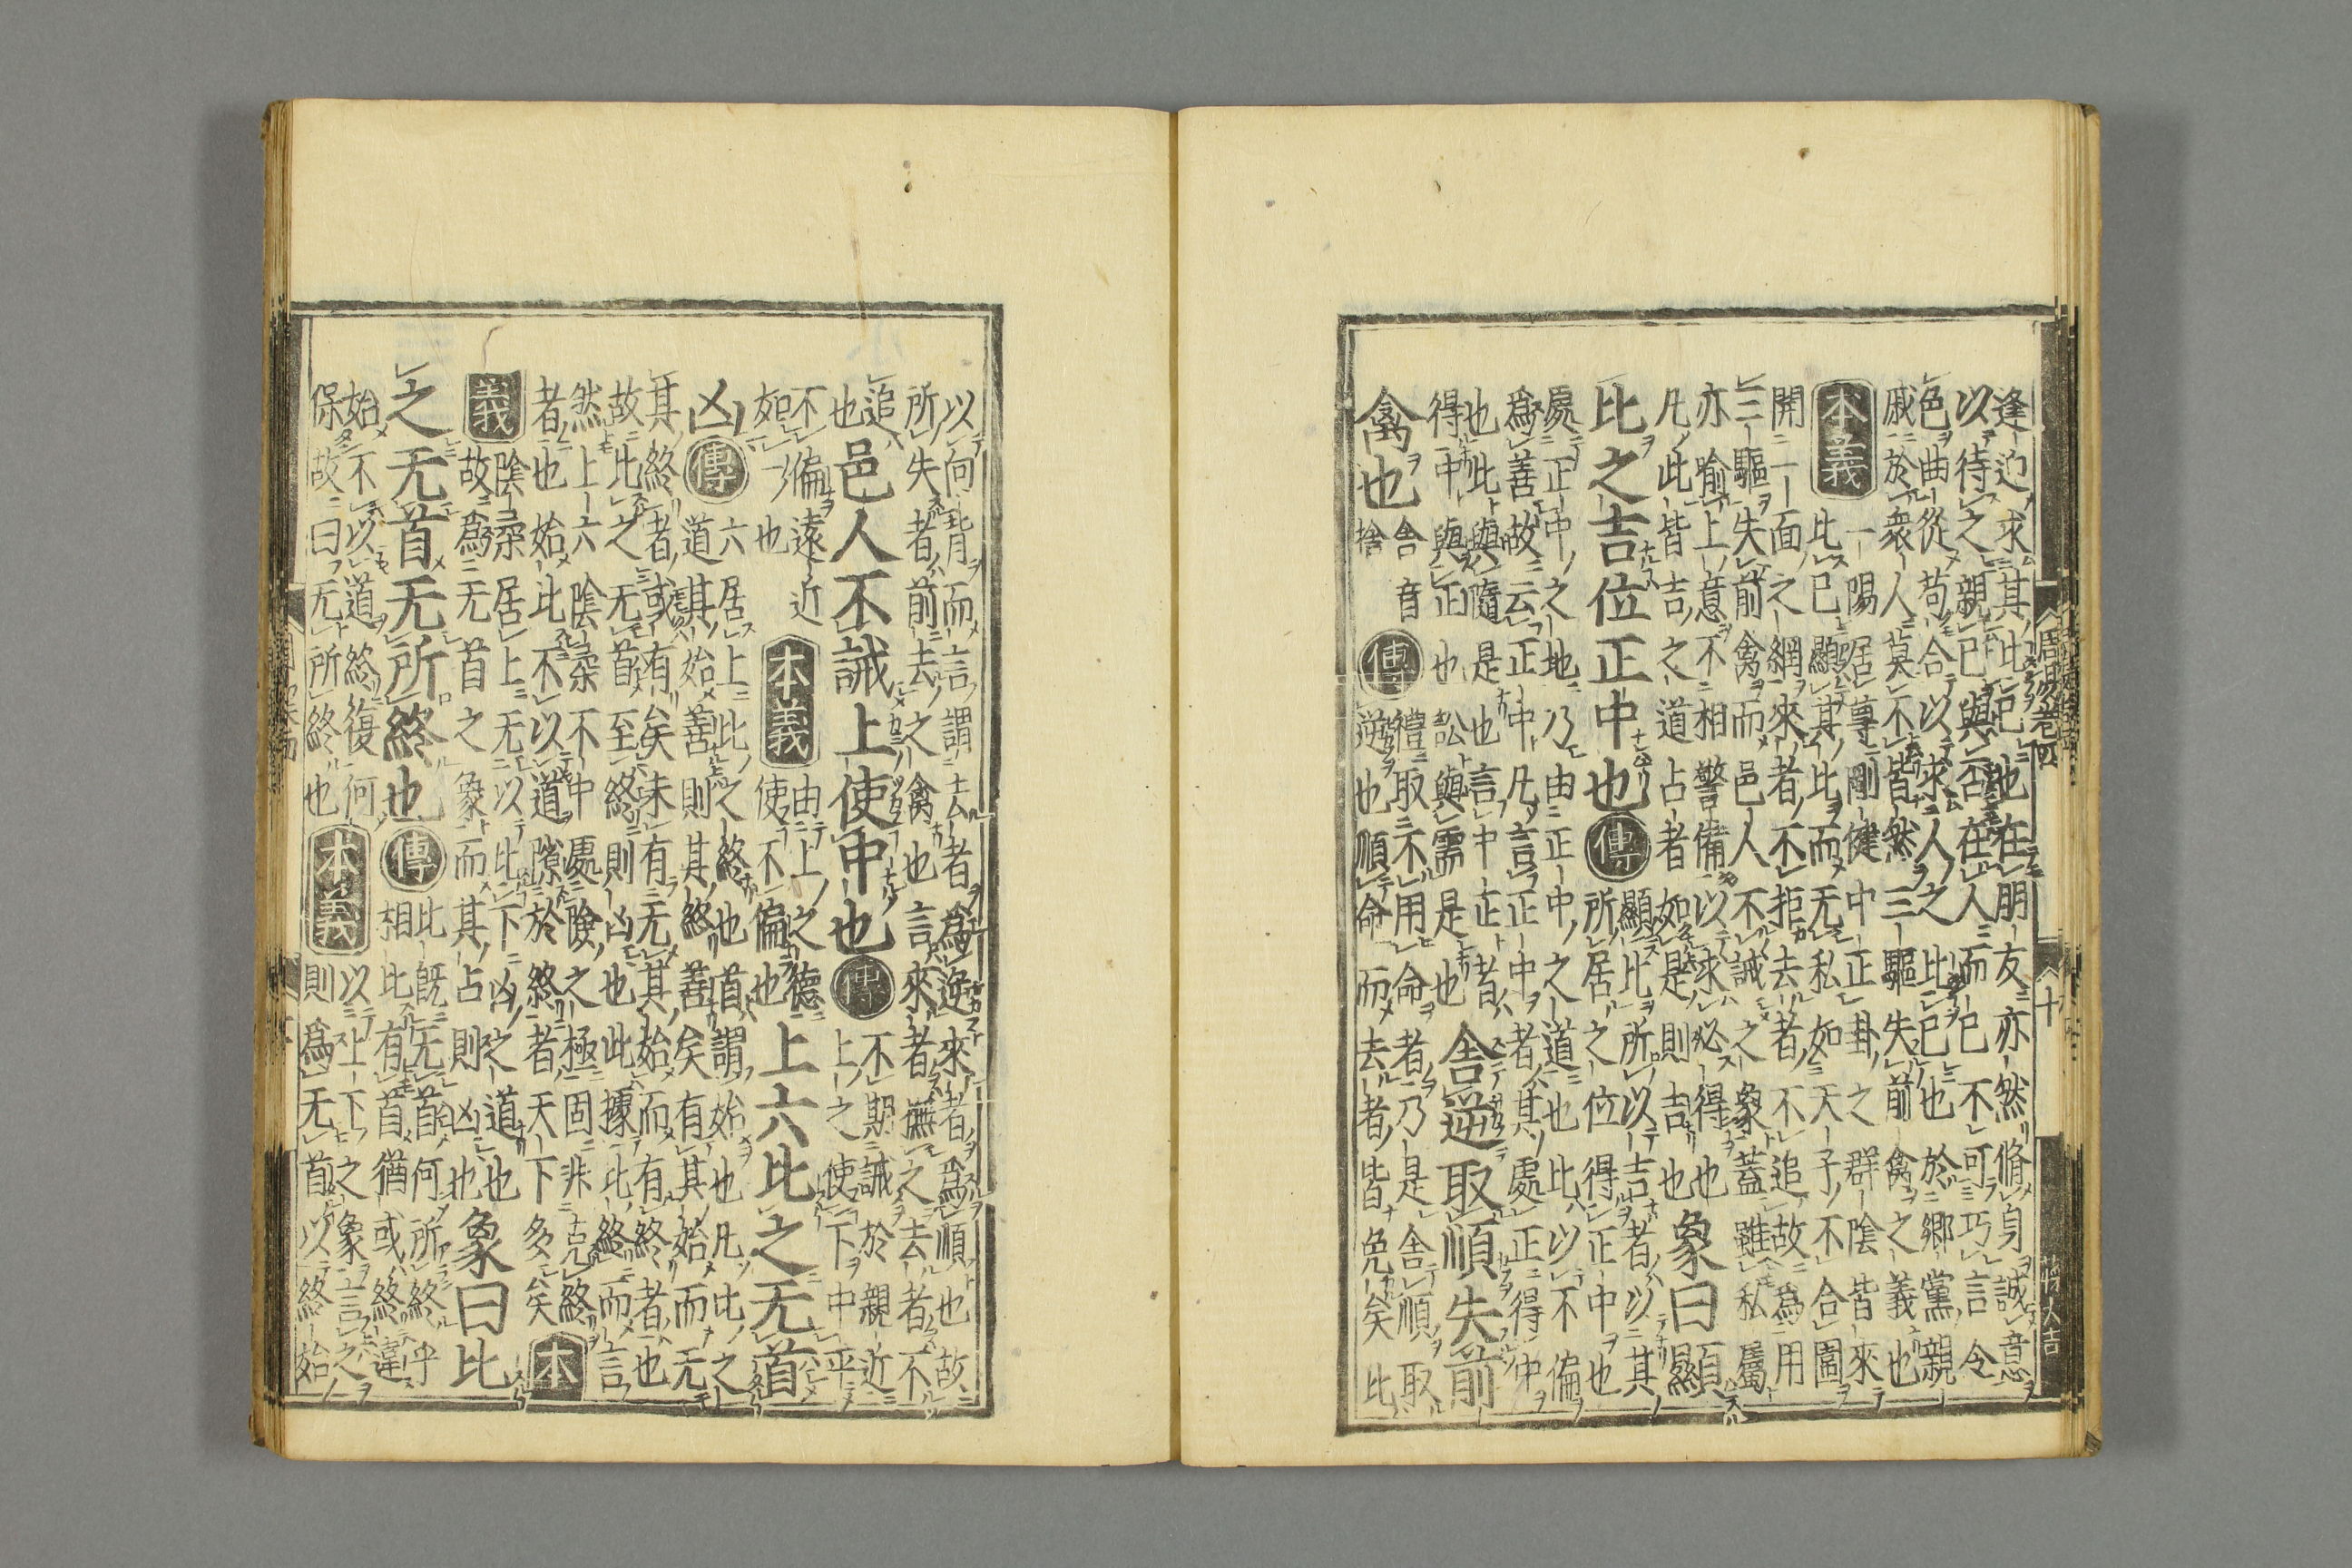 逢迎求其比己也在朋友亦然脩身誠意
以待之親己與否在人而已不可巧言令
色曲從苟合以求人之比己也於鄉黨親
戚於衆人莫不皆然三驅失前禽之義也
本義
一陽居尊剛健中正卦之群陰皆來
比己顯其比而无私如天子不合圍
開一面之網來者不拒去者不追故為用
三驅失前禽而邑人不誡之象蓋雖私屬
亦喻上意不相警備以求必得也
凡此皆吉之道占者如是則吉也
象曰顯
比之吉位正中也
傳
顯比所以吉者以其
所居之位得正中也
處正中之地乃由正中之道也比以不偏
為善故云正中凡言正中者其處正得中
也比與隨是也言中正者
得中與正也訟與需是也
舍逆取順失前
禽也
舍音
捨
傳
禮取不用命者乃是舍順取
逆也順命而去者皆免矣比
周易卷四
十
以向背而言謂去者為逆來者為順也故
所失者前去之禽也言來者撫之去者不
追
也
邑人不誡上使中也
傳
不期誡於親近
上之使下中平
不偏遠近
如一也
本義
由上之德
使不偏也
上六比之无首
凶
傳
六居上比之終也首謂始也凡比之
道其始善則其終善矣有其始而无
其終者或有矣未有无其始而有終者也
故比之无首至終則凶也此據比終而言
然上六陰柔不中處險之極固非克終
者也始比不以道隙於終者天下多矣
本
義
陰柔居上无以比下凶之道也
故為无首之象而其占則凶也
象曰比
之无首无所終也
傳
比既无首何所終乎
相比有首猶或終違
始不以道終復何
保故曰无所終也
本義
以上下之象言之
則為无首以終始